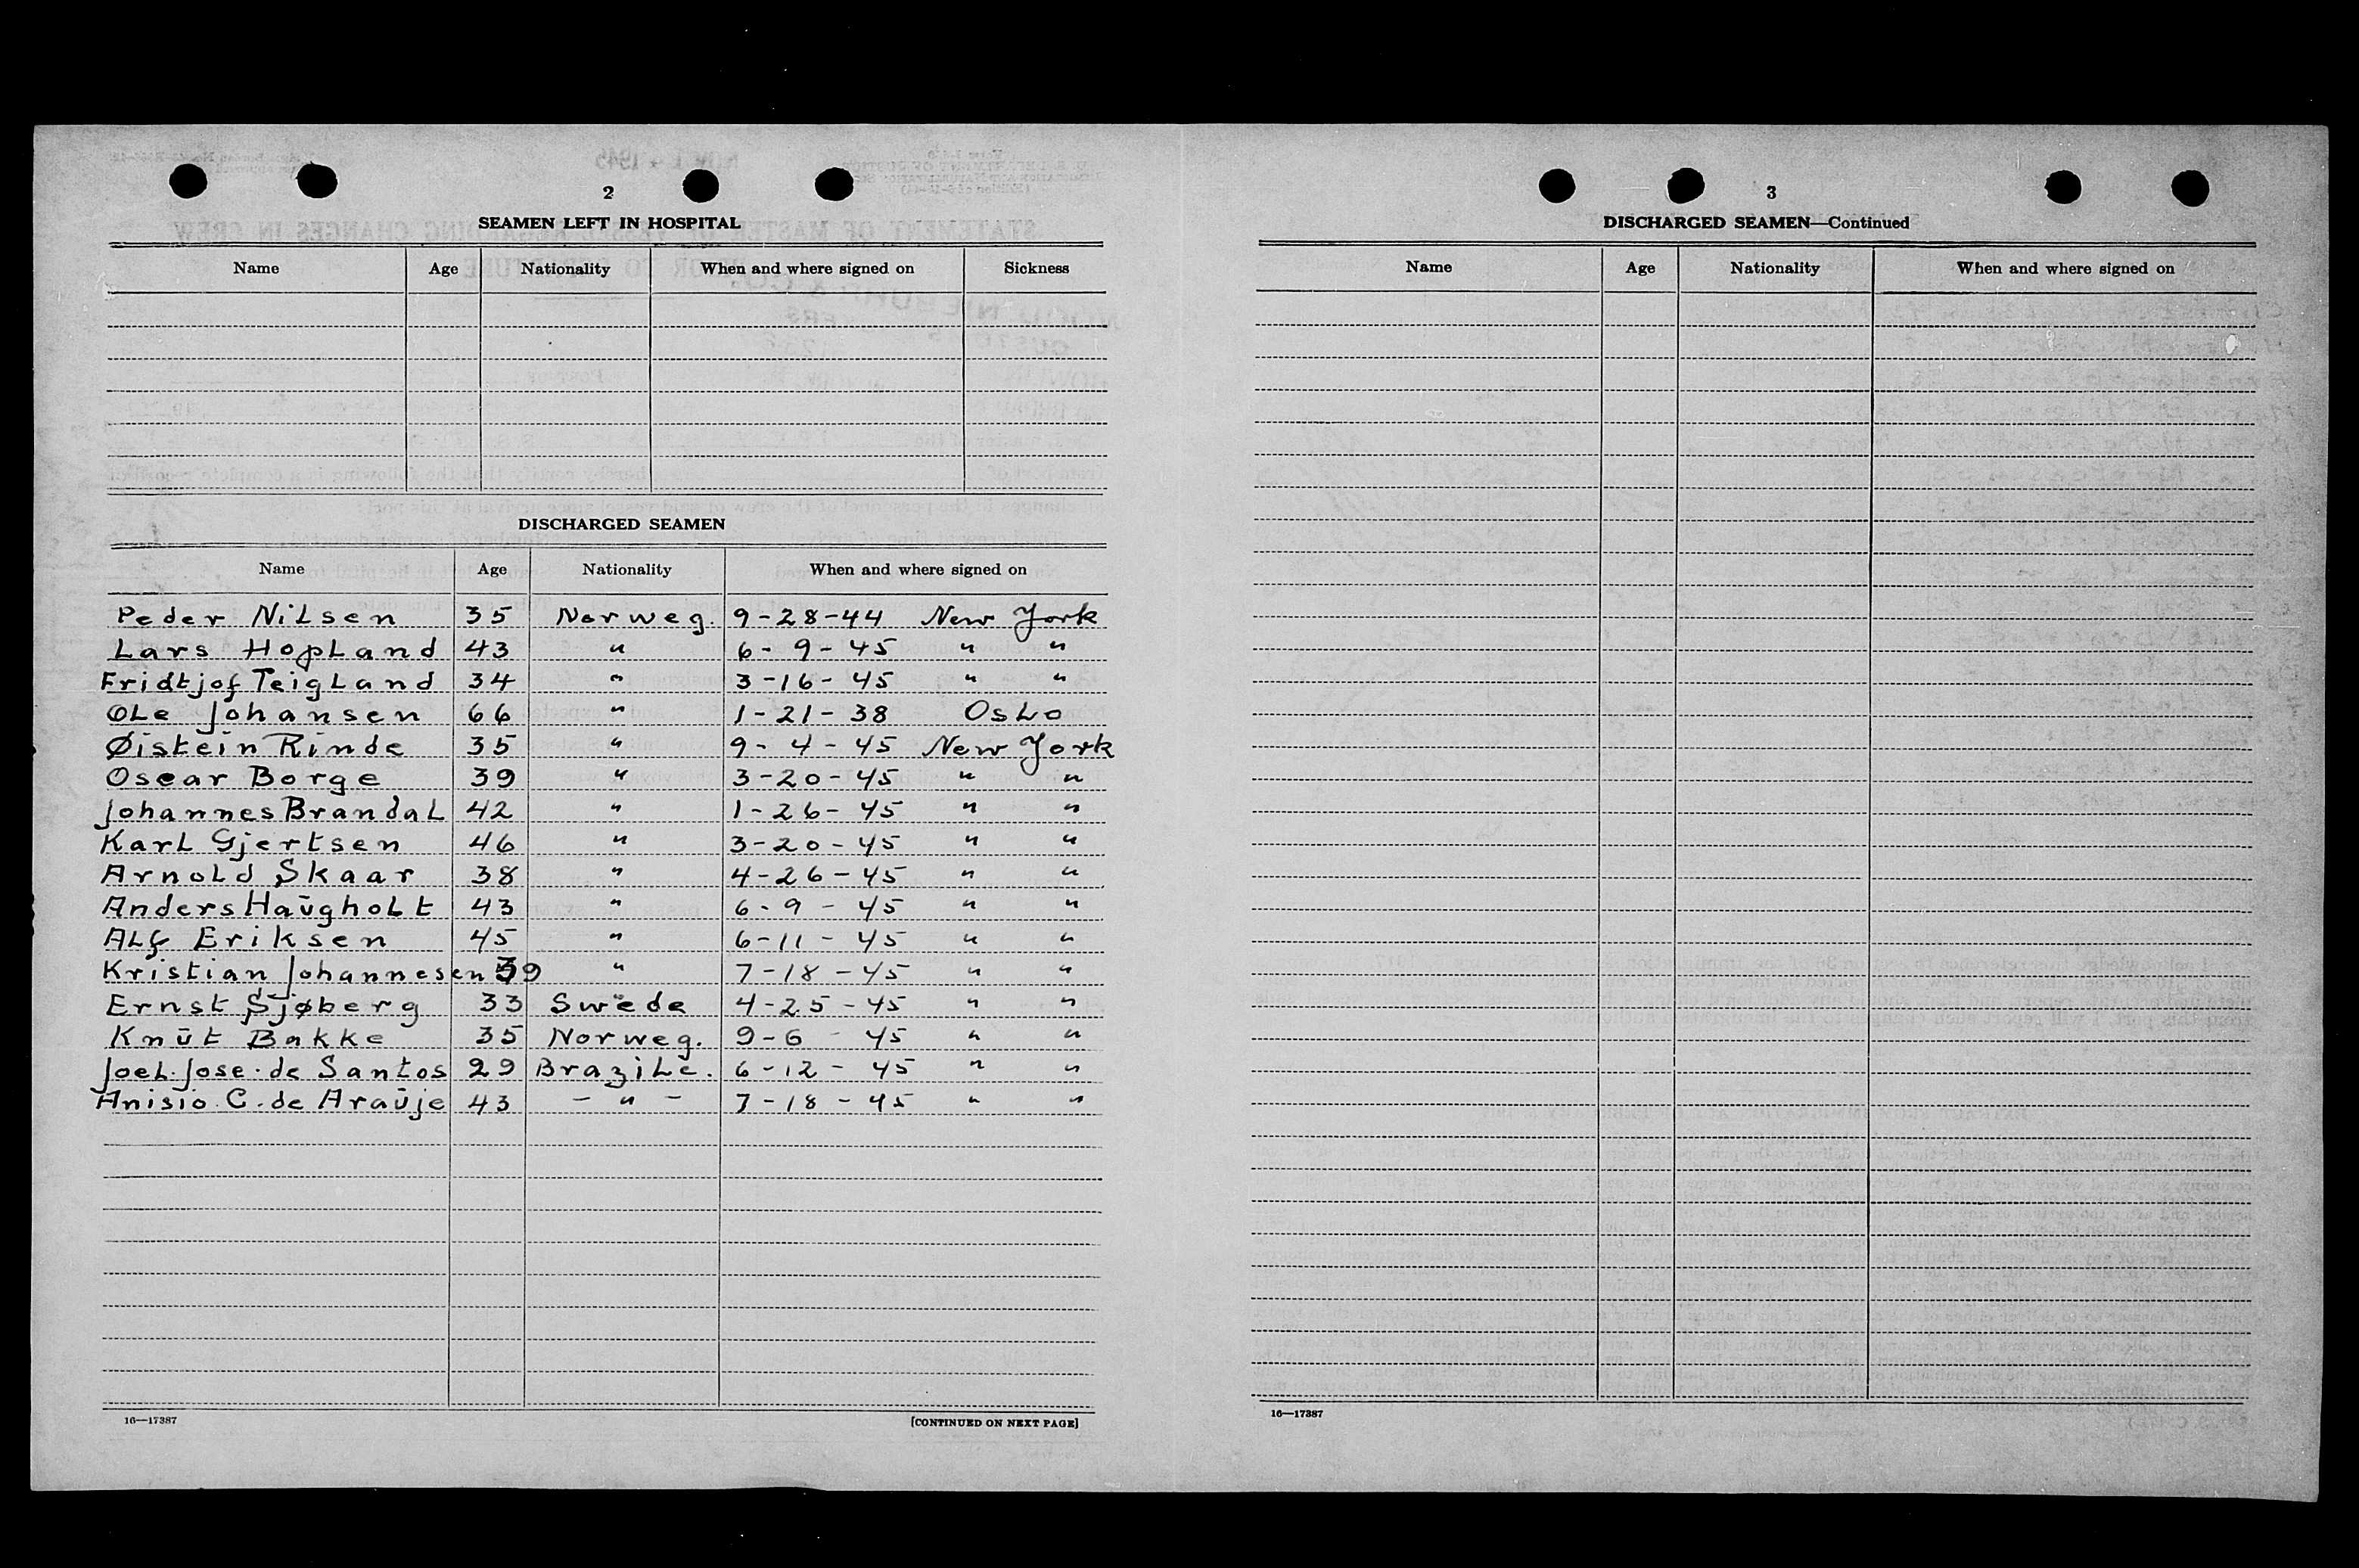 2
SEAMEN LEFT IN HOSPITAL
Name Age Nationality When and where signed on Sickness
DISCHARGED SEAMEN
Name Age Nationality When and where signed on
Peder Nilsen 35 Norweg. 9-28-44 New York
Lars Hopland 43 " 6-9-45 " "
Fridtjof Teigland 34 " 3-16-45 " "
Ole Johansen 66 " 1-21-38 Oslo
Øistein Rinde 35 " 9-4-45 New York
Oscar Borge 39 " 3-20-45 " "
Johannes Brandal 42 " 1-26-45 " "
Karl Gjertsen 46 " 3-20-45 " "
Arnold Skaar 38 " 4-26-45 " "
Anders Haugholt 43 " 6-9-45 " "
Alf Eriksen 45 " 6-11-45 " "
Kristian Johannesen 39 " 7-18-45 " "
Ernst Sjøberg 33 Swede 4-25-45 " "
Knut Bakke 35 Norweg. 9-6-45 " "
Joel.Jose.de Santos 29 Brazile. 6-12-45 " "
Anisio.C.de Arauje 43 - " - 7-18-45 " "
16—17387
[CONTINUED ON NEXT PAGE]
3
DISCHARGED SEAMEN—Continued
Name Age Nationality When and where signed on
16—17387